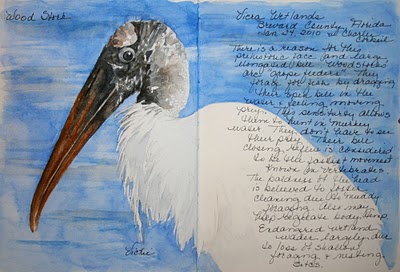 Wood Stork
Viera Wetlands
Brevard County, Florida
Jan 24, 2010 w/ Charlie
There is a reason for this
prehistoric face and large
bill. Wood Storks
are "grope feeders". They
forage for fish by dragging
their open bill in the
water & feeling moving
prey. This sensitivity allows
them to hunt in murky
water. They don't have to see
their prey. Their bill
closing reflex is considered
to be the fastest movement
known for vertebrates.
The baldness of the head
is believed to foster
cleaning due to muddy
foraging. Also may
help regulate body temp.
Endangered wetland
wader largely due
to loss of shallow
foraging & nesting
sites.
Vickie